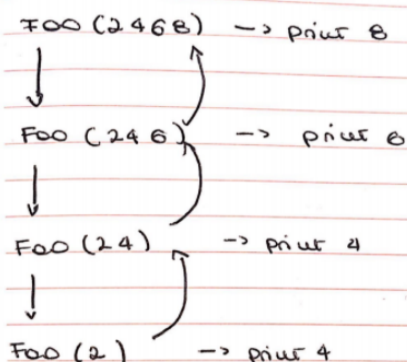 FOO (2468) -> print 8
Foo (246) -> print 6
Foo (24) -> print 4
Foo (2) -> print 4